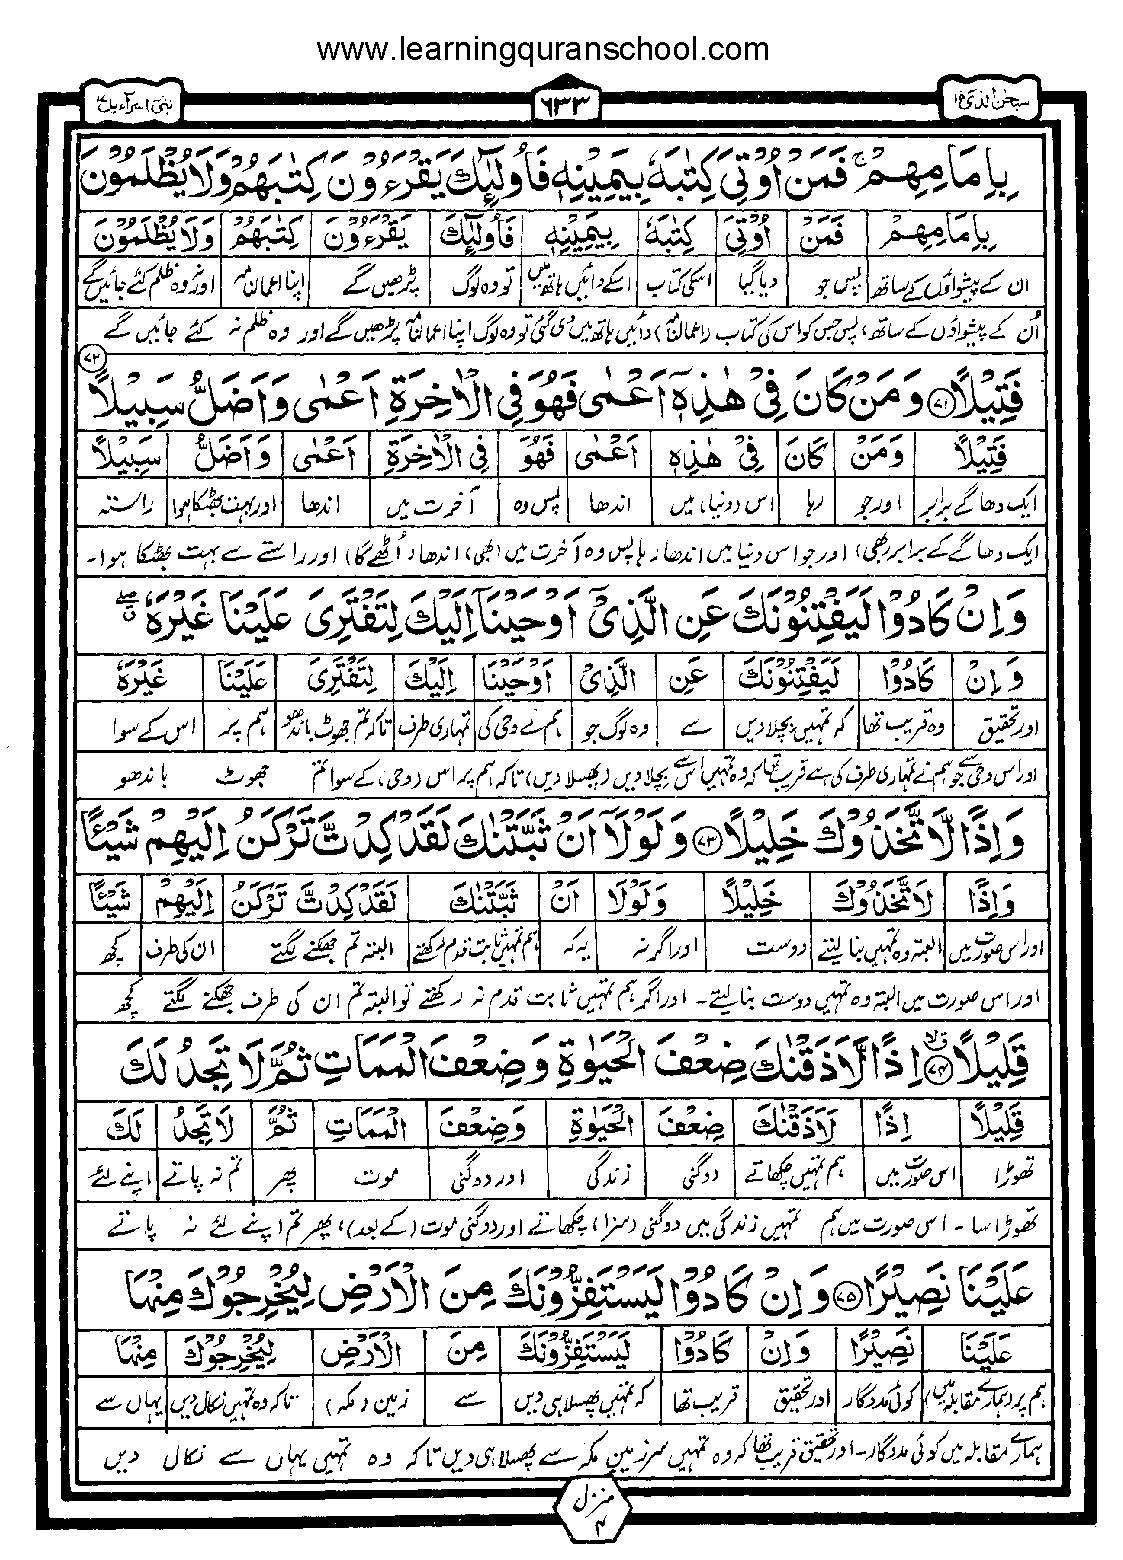 www.learningquranschool.com
سبحن الذی ۱۵
۶۳۳
بنی اسرآءیل ۱۷
بِاِمَامِهِمْ ۚ فَمَنْ اُوْتِیَ كِتٰبَهٗ بِیَمِیْنِهٖ فَاُولٰٓئِكَ یَقْرَءُوْنَ كِتٰبَهُمْ وَلَا یُظْلَمُوْنَ
بِاِمَامِهِمْ فَمَنْ اُوْتِیَ كِتٰبَهٗ بِیَمِیْنِهٖ فَاُولٰٓئِكَ یَقْرَءُوْنَ كِتٰبَهُمْ وَلَا یُظْلَمُوْنَ
ان کے پیشواؤں کے ساتھ پس جو دیا گیا اسکی کتاب اسکے دائیں ہاتھ میں تو وہ لوگ پڑھیں گے اپنا اعمالنامہ اور نہ وہ ظلم کئے جائیں گے
اُن کے پیشواؤں کے ساتھ، پس جس کو اس کی کتاب (اعمالنامہ) دائیں ہاتھ میں دی گئی تو وہ لوگ اپنا اعمالنامہ پڑھیں گے اور وہ ظلم نہ کئے جائیں گے
فَتِیْلًا ۷۱ وَمَنْ كَانَ فِیْ هٰذِهٖۤ اَعْمٰی فَهُوَ فِی الْاٰخِرَةِ اَعْمٰی وَاَضَلُّ سَبِیْلًا ۷۲
فَتِیْلًا وَمَنْ كَانَ فِیْ هٰذِهٖ اَعْمٰی فَهُوَ فِی الْاٰخِرَةِ اَعْمٰی وَاَضَلُّ سَبِیْلًا
ایک دھاگے برابر اور جو رہا اس (دنیا) میں اندھا پس وہ آخرت میں اندھا اور بہت بھٹکا ہوا راستہ
ایک دھاگے کے برابر (بھی) اور جو اس دنیا میں اندھا رہا پس وہ آخرت میں (بھی) اندھا (اُٹھے گا) اور راستے سے بہت بھٹکا ہوا۔
وَاِنْ كَادُوْا لَیَفْتِنُوْنَكَ عَنِ الَّذِیْۤ اَوْحَیْنَاۤ اِلَیْكَ لِتَفْتَرِیَ عَلَیْنَا غَیْرَهٗ ۖ
وَاِنْ كَادُوْا لَیَفْتِنُوْنَكَ عَنِ الَّذِیْ اَوْحَیْنَا اِلَیْكَ لِتَفْتَرِیَ عَلَیْنَا غَیْرَهٗ
اور تحقیق وہ قریب تھا کہ تمہیں بچلا دیں سے وہ لوگ جو ہم نے وحی کی تمہاری طرف تاکہ تم جھوٹ باندھو ہم پر اس کے سوا
اور اس وحی سے جو ہم نے تمہاری طرف کی ہے قریب تھا کہ وہ تمہیں اس سے بچلا دیں (پھسلا دیں) تاکہ ہم پر اس (وحی) کے سوا تم جھوٹ باندھو
وَاِذًا لَّاتَّخَذُوْكَ خَلِیْلًا ۷۳ وَلَوْلَاۤ اَنْ ثَبَّتْنٰكَ لَقَدْ كِدْتَّ تَرْكَنُ اِلَیْهِمْ شَیْـًٔا
وَاِذًا لَاتَّخَذُوْكَ خَلِیْلًا وَلَوْلَا اَنْ ثَبَّتْنٰكَ لَقَدْ كِدْتَّ تَرْكَنُ اِلَیْهِمْ شَیْـًٔا
اور اس صورت میں البتہ وہ تمہیں بنا لیتے دوست اور اگر نہ یہ کہ ہم تمہیں ثابت قدم رکھتے البتہ تم جھکنے لگتے ان کی طرف کچھ
اور اس صورت میں البتہ وہ تمہیں دوست بنا لیتے۔ اور اگر ہم تمہیں ثابت قدم نہ رکھتے تو البتہ تم ان کی طرف جھکنے لگتے کچھ
قَلِیْلًا ۷۴ اِذًا لَّاَذَقْنٰكَ ضِعْفَ الْحَیٰوةِ وَضِعْفَ الْمَمَاتِ ثُمَّ لَا تَجِدُ لَكَ
قَلِیْلًا اِذًا لَاَذَقْنٰكَ ضِعْفَ الْحَیٰوةِ وَضِعْفَ الْمَمَاتِ ثُمَّ لَا تَجِدُ لَكَ
تھوڑا اس صورت میں ہم تمہیں چکھاتے دوگنی زندگی اور دوگنی موت پھر تم نہ پاتے اپنے لئے
تھوڑا سا۔ اس صورت میں ہم تمہیں زندگی میں دوگنی (سزا) چکھاتے اور دوگنی موت (کے بعد)، پھر تم اپنے لئے نہ پاتے
عَلَیْنَا نَصِیْرًا ۷۵ وَاِنْ كَادُوْا لَیَسْتَفِزُّوْنَكَ مِنَ الْاَرْضِ لِیُخْرِجُوْكَ مِنْهَا
عَلَیْنَا نَصِیْرًا وَاِنْ كَادُوْا لَیَسْتَفِزُّوْنَكَ مِنَ الْاَرْضِ لِیُخْرِجُوْكَ مِنْهَا
ہم پر (ہمارے مقابلہ میں) کوئی مددگار اور تحقیق قریب تھا کہ تمہیں پھسلا ہی دیں سے زمین (مکہ) تاکہ وہ تمہیں نکال دیں یہاں سے
ہمارے مقابلہ میں کوئی مددگار۔ اور تحقیق قریب تھا کہ وہ تمہیں سرزمین مکہ سے پھسلا ہی دیں تاکہ وہ تمہیں یہاں سے نکال دیں
منزل
۴